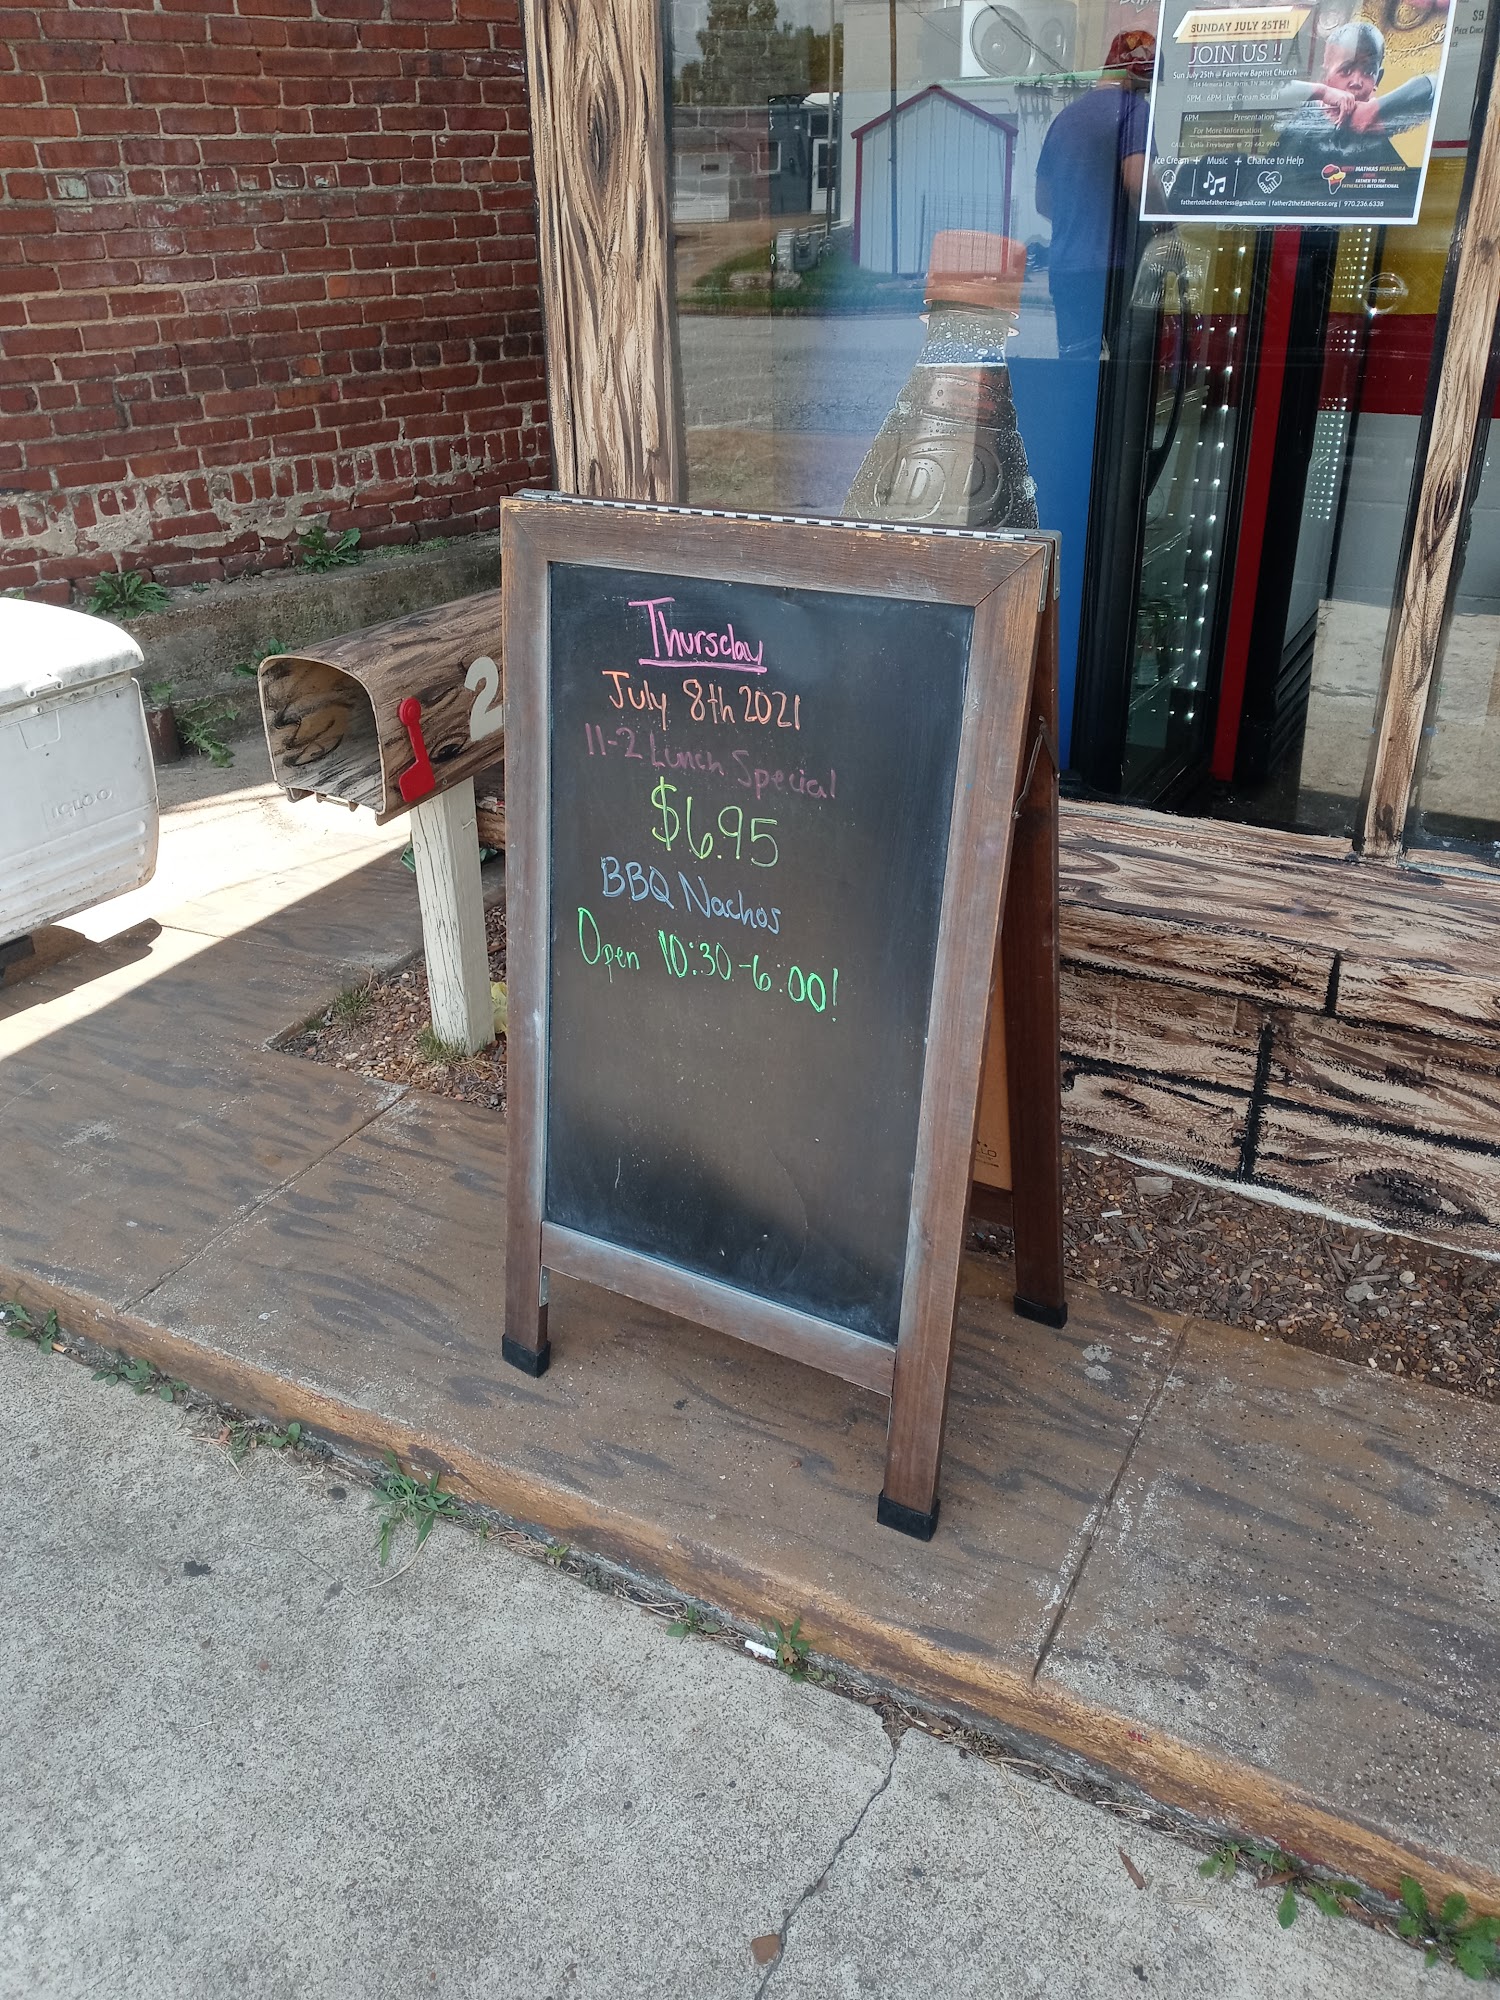 Thursday
July 8th 2021
11-2 Lunch Special
$6.95
BBQ Nachos
Open 10:30-6:00!
SUNDAY JULY 25TH!
JOIN US !!
Sun July 25th @ Fairview Baptist Church
5PM - 6PM : Ice Cream Social
6PM : Presentation
For More Information
Ice Cream + Music + Chance to Help
WITH MATHIAS MULUMBA
FROM
FATHER TO THE
FATHERLESS INTERNATIONAL
fathertothefatherless@gmail.com | father2thefatherless.org | 970.236.6338
$9.
IGLOO
2